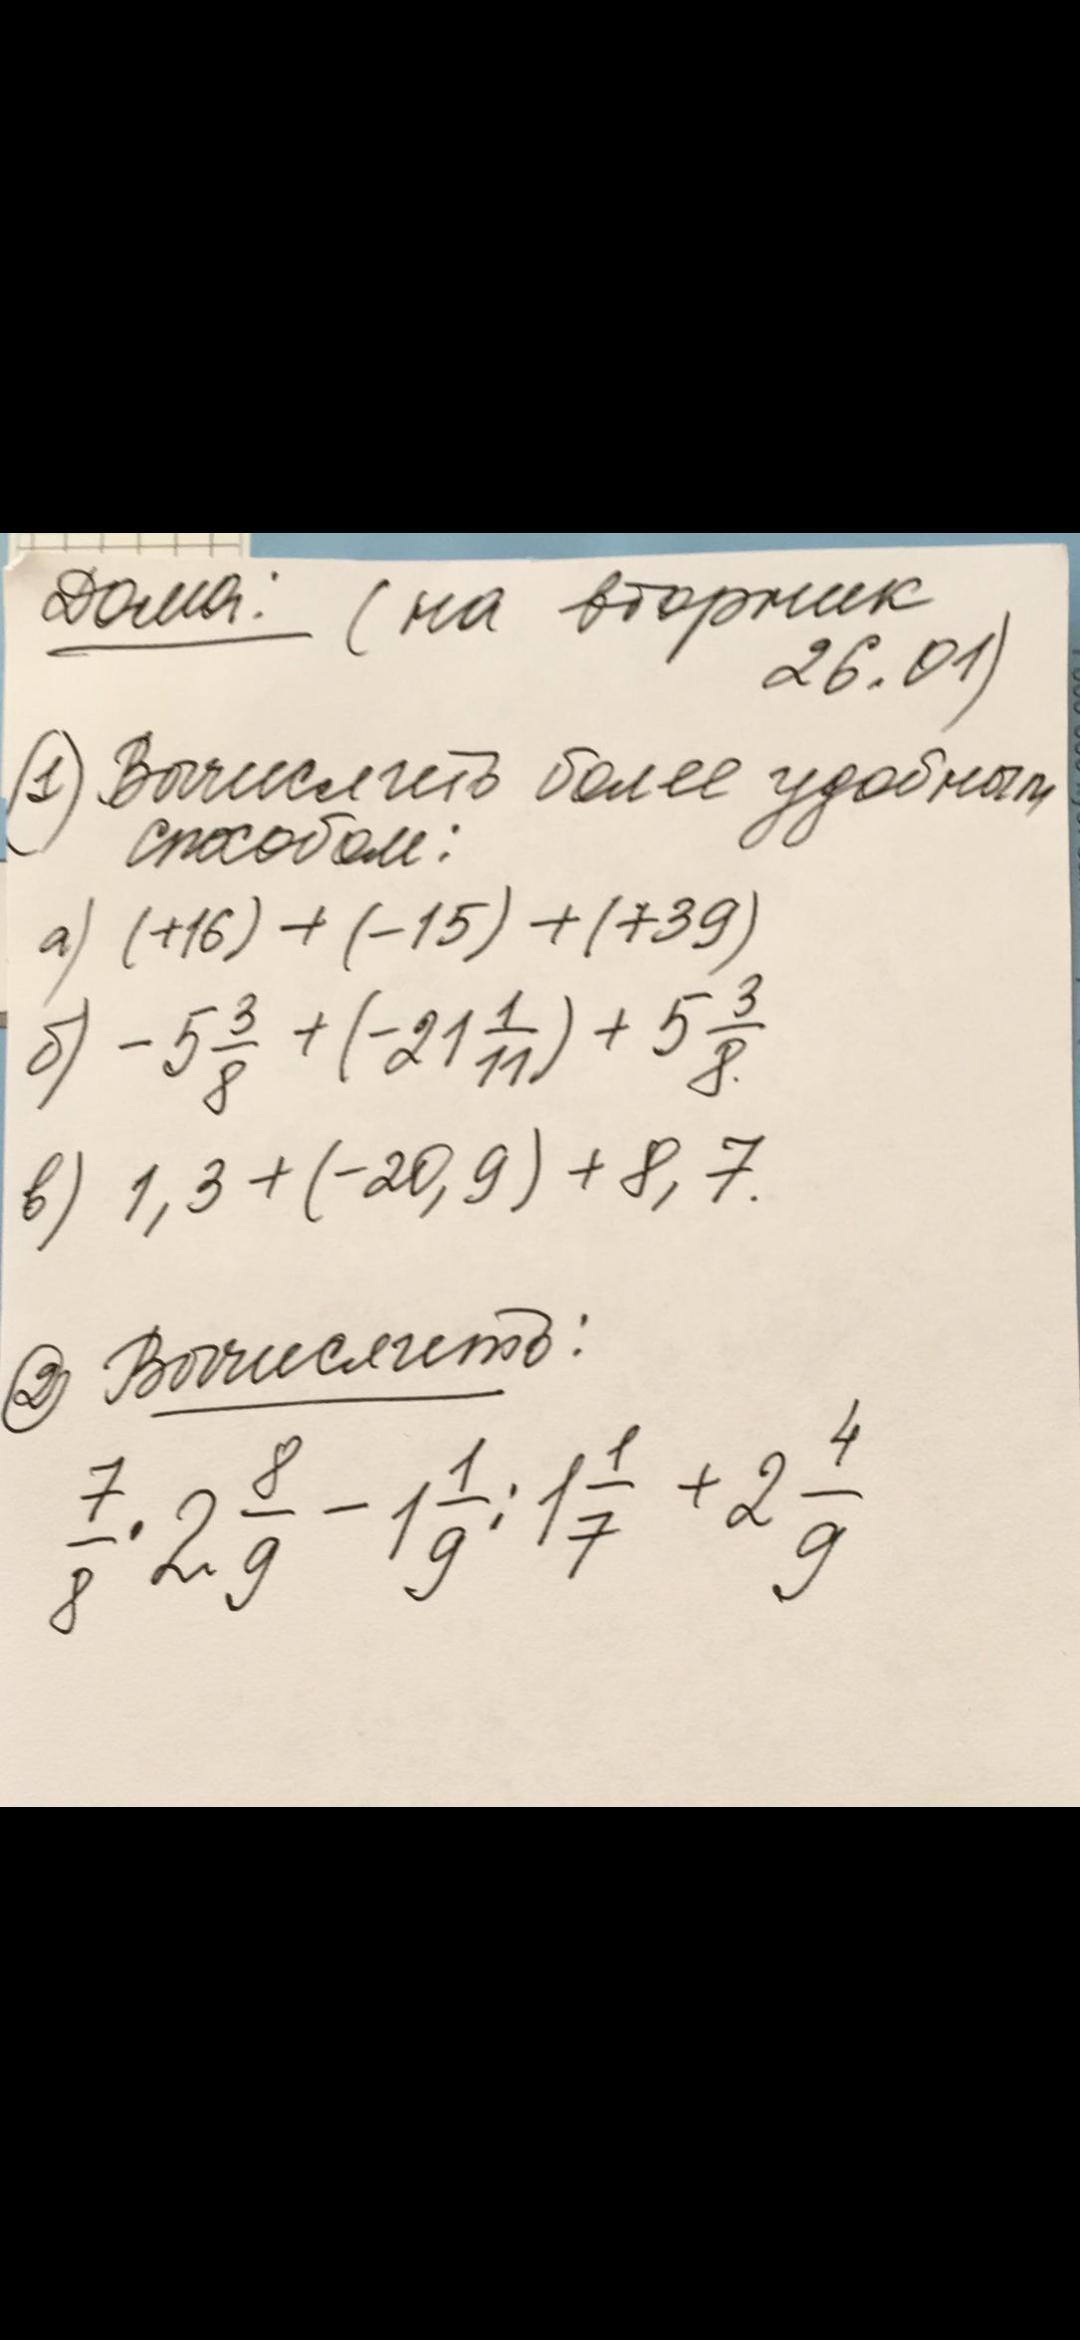 Дома: (на вторник
26.01)
1) Вычислить более удобным
способом:
а) (+16) + (-15) + (+39)
б) - 5 3/8 + (-21 1/11) + 5 3/8.
в) 1,3 + (-20,9) + 8,7.
2) Вычислить:
7/8 · 2 8/9 - 1 1/9 : 1 1/7 + 2 4/9